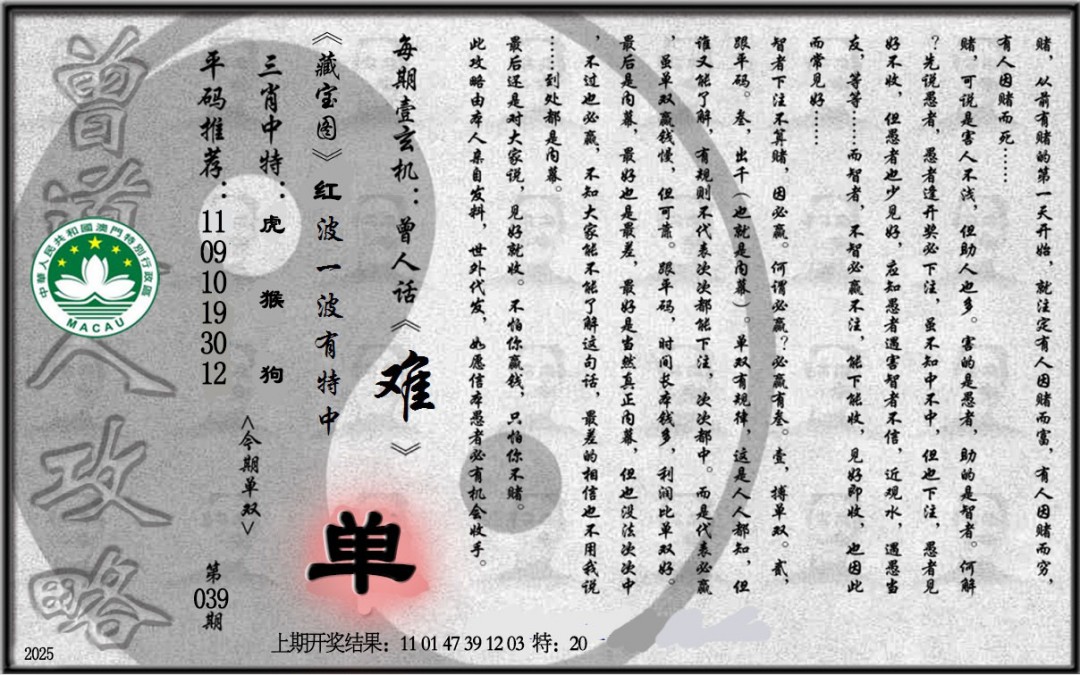 赌，从前有赌的第一天开始，就注定有人因赌而富，有人因赌而穷，
有人因赌而死……
赌，可说是害人不浅，但助人也多。害的是愚者，助的是智者。何解
？先说愚者，愚者逢开奖必下注，虽不知中不中，但也下注，愚者见
好不收，但愚者也少见好，应知愚者遇害智者不信，近观水，遇愚当
友，等等……而智者，不智必赢不注，能下能收，见好即收，也因此
而常见好……
智者下注不算赌，因必赢。何谓必赢？必赢有叁。壹，搏单双。贰，
跟平码。叁，出千（也就是内幕）。单双有规律，这是人人都知，但
谁又能了解，有规则不代表次次都能下注，次次都中。而是代表必赢
，虽单双赢钱慢，但可靠。跟平码，时间长本钱多，利润比单双好。
最后是内幕，最好也是最差，最好是当然真正内幕，但也没法次次中
，不过也必赢，不知大家能不能了解这句话，最差的相信也不用我说
……到处都是内幕。
最后还是对大家说，见好就收。不怕你赢钱，只怕你不赌。
此攻略由本人亲自发料，世外代发，如愿信本愚者必有机会收手。
每期壹玄机：曾人话《难》
《藏宝图》红波一波有特中
单
三肖中特：虎 猴 狗
<今期单双>
平码推荐：11 09 10 19 30 12
第039期
曾道人攻略
中華人民共和國澳門特別行政區
MACAU
上期开奖结果：11 01 47 39 12 03 特：20
2025